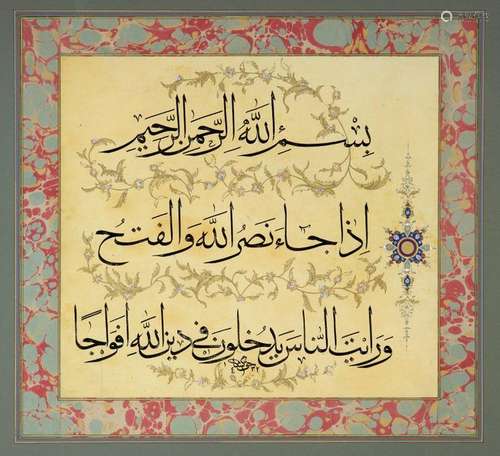 بِسْمِ اللَّهِ الرَّحْمٰنِ الرَّحِيمِ
اِذَا جَاءَ نَصْرُ اللَّهِ وَالفَتْحُ
وَرَاَيْتَ النَّاسَ يَدْخُلُونَ فِي دِينِ اللَّهِ اَفْوَاجًا